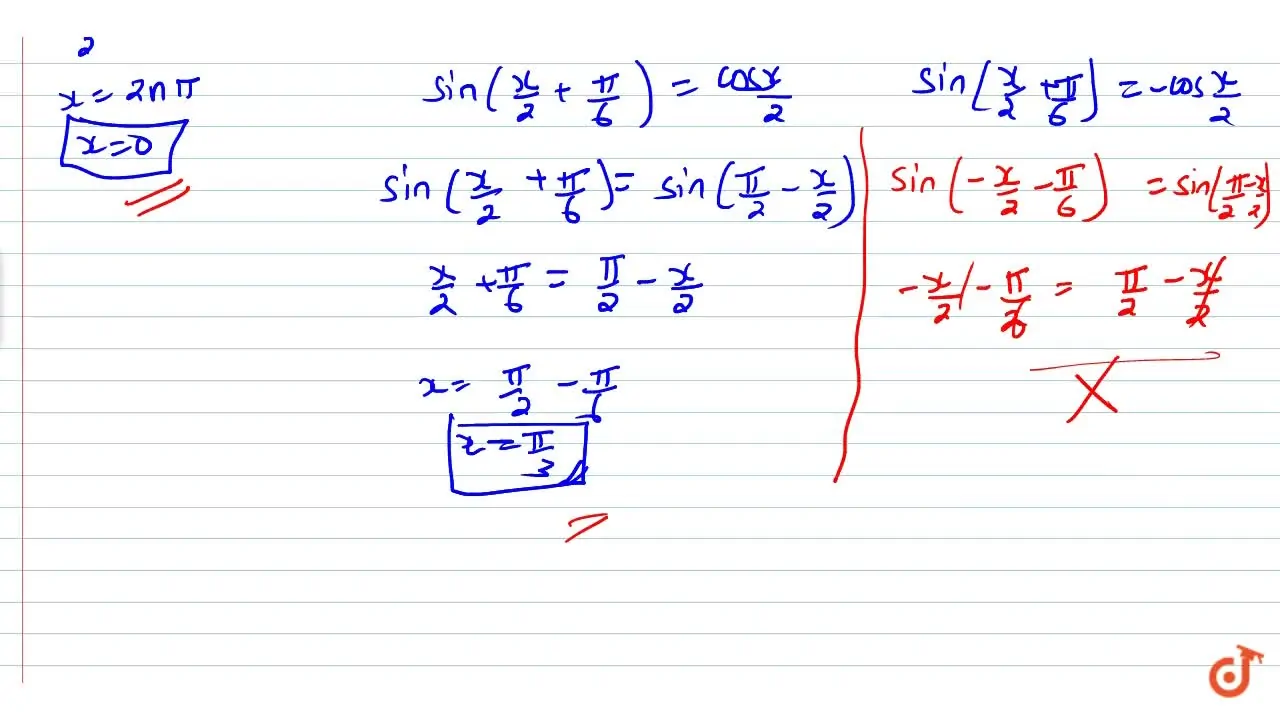 2
x = 2nπ
x = 0
sin(x/2 + π/6) = cos x/2
sin(x/2 + π/6) = sin(π/2 - x/2)
x/2 + π/6 = π/2 - x/2
x = π/2 - π/6
x = π/3
sin(x/2 + π/6) = -cos x/2
sin(-x/2 - π/6) = sin(π/2 - x/2)
-x/2 - π/6 = π/2 - x/2
X